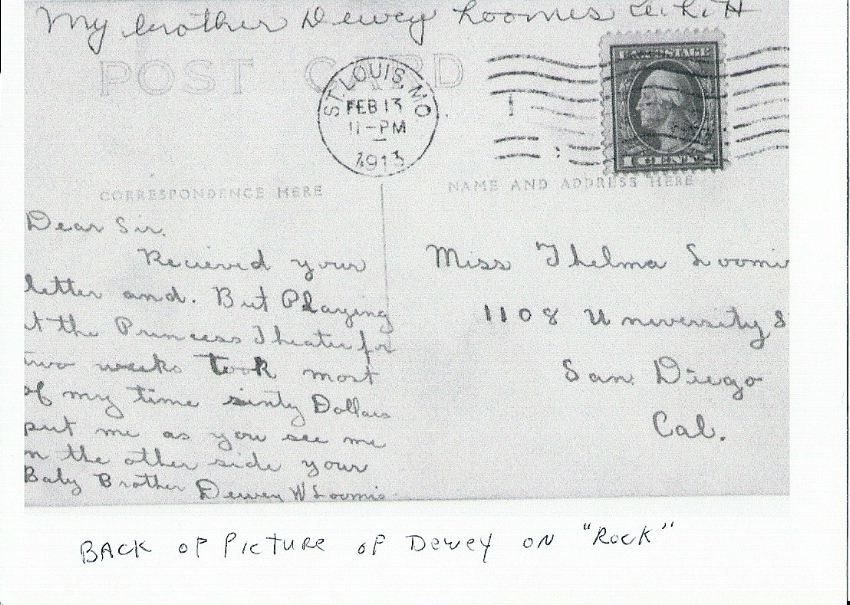 My brother Dewey Loomis
POST CARD
ST. LOUIS, MO.
FEB 13
11-PM
1913
U.S. POSTAGE
CENTS
CORRESPONDENCE HERE
NAME AND ADDRESS HERE
Dear Sir.
Recieved your
letter and. But Playing
t the Princess Theater for
two weeks took most
of my time sixty Dollars
put me as you see me
n the other side your
Baby Brother Dewey W Loomis
Miss Thelma Loomi
1108 University S
San Diego
Cal.
BACK OF PICTURE OF DEWEY ON "ROCK"